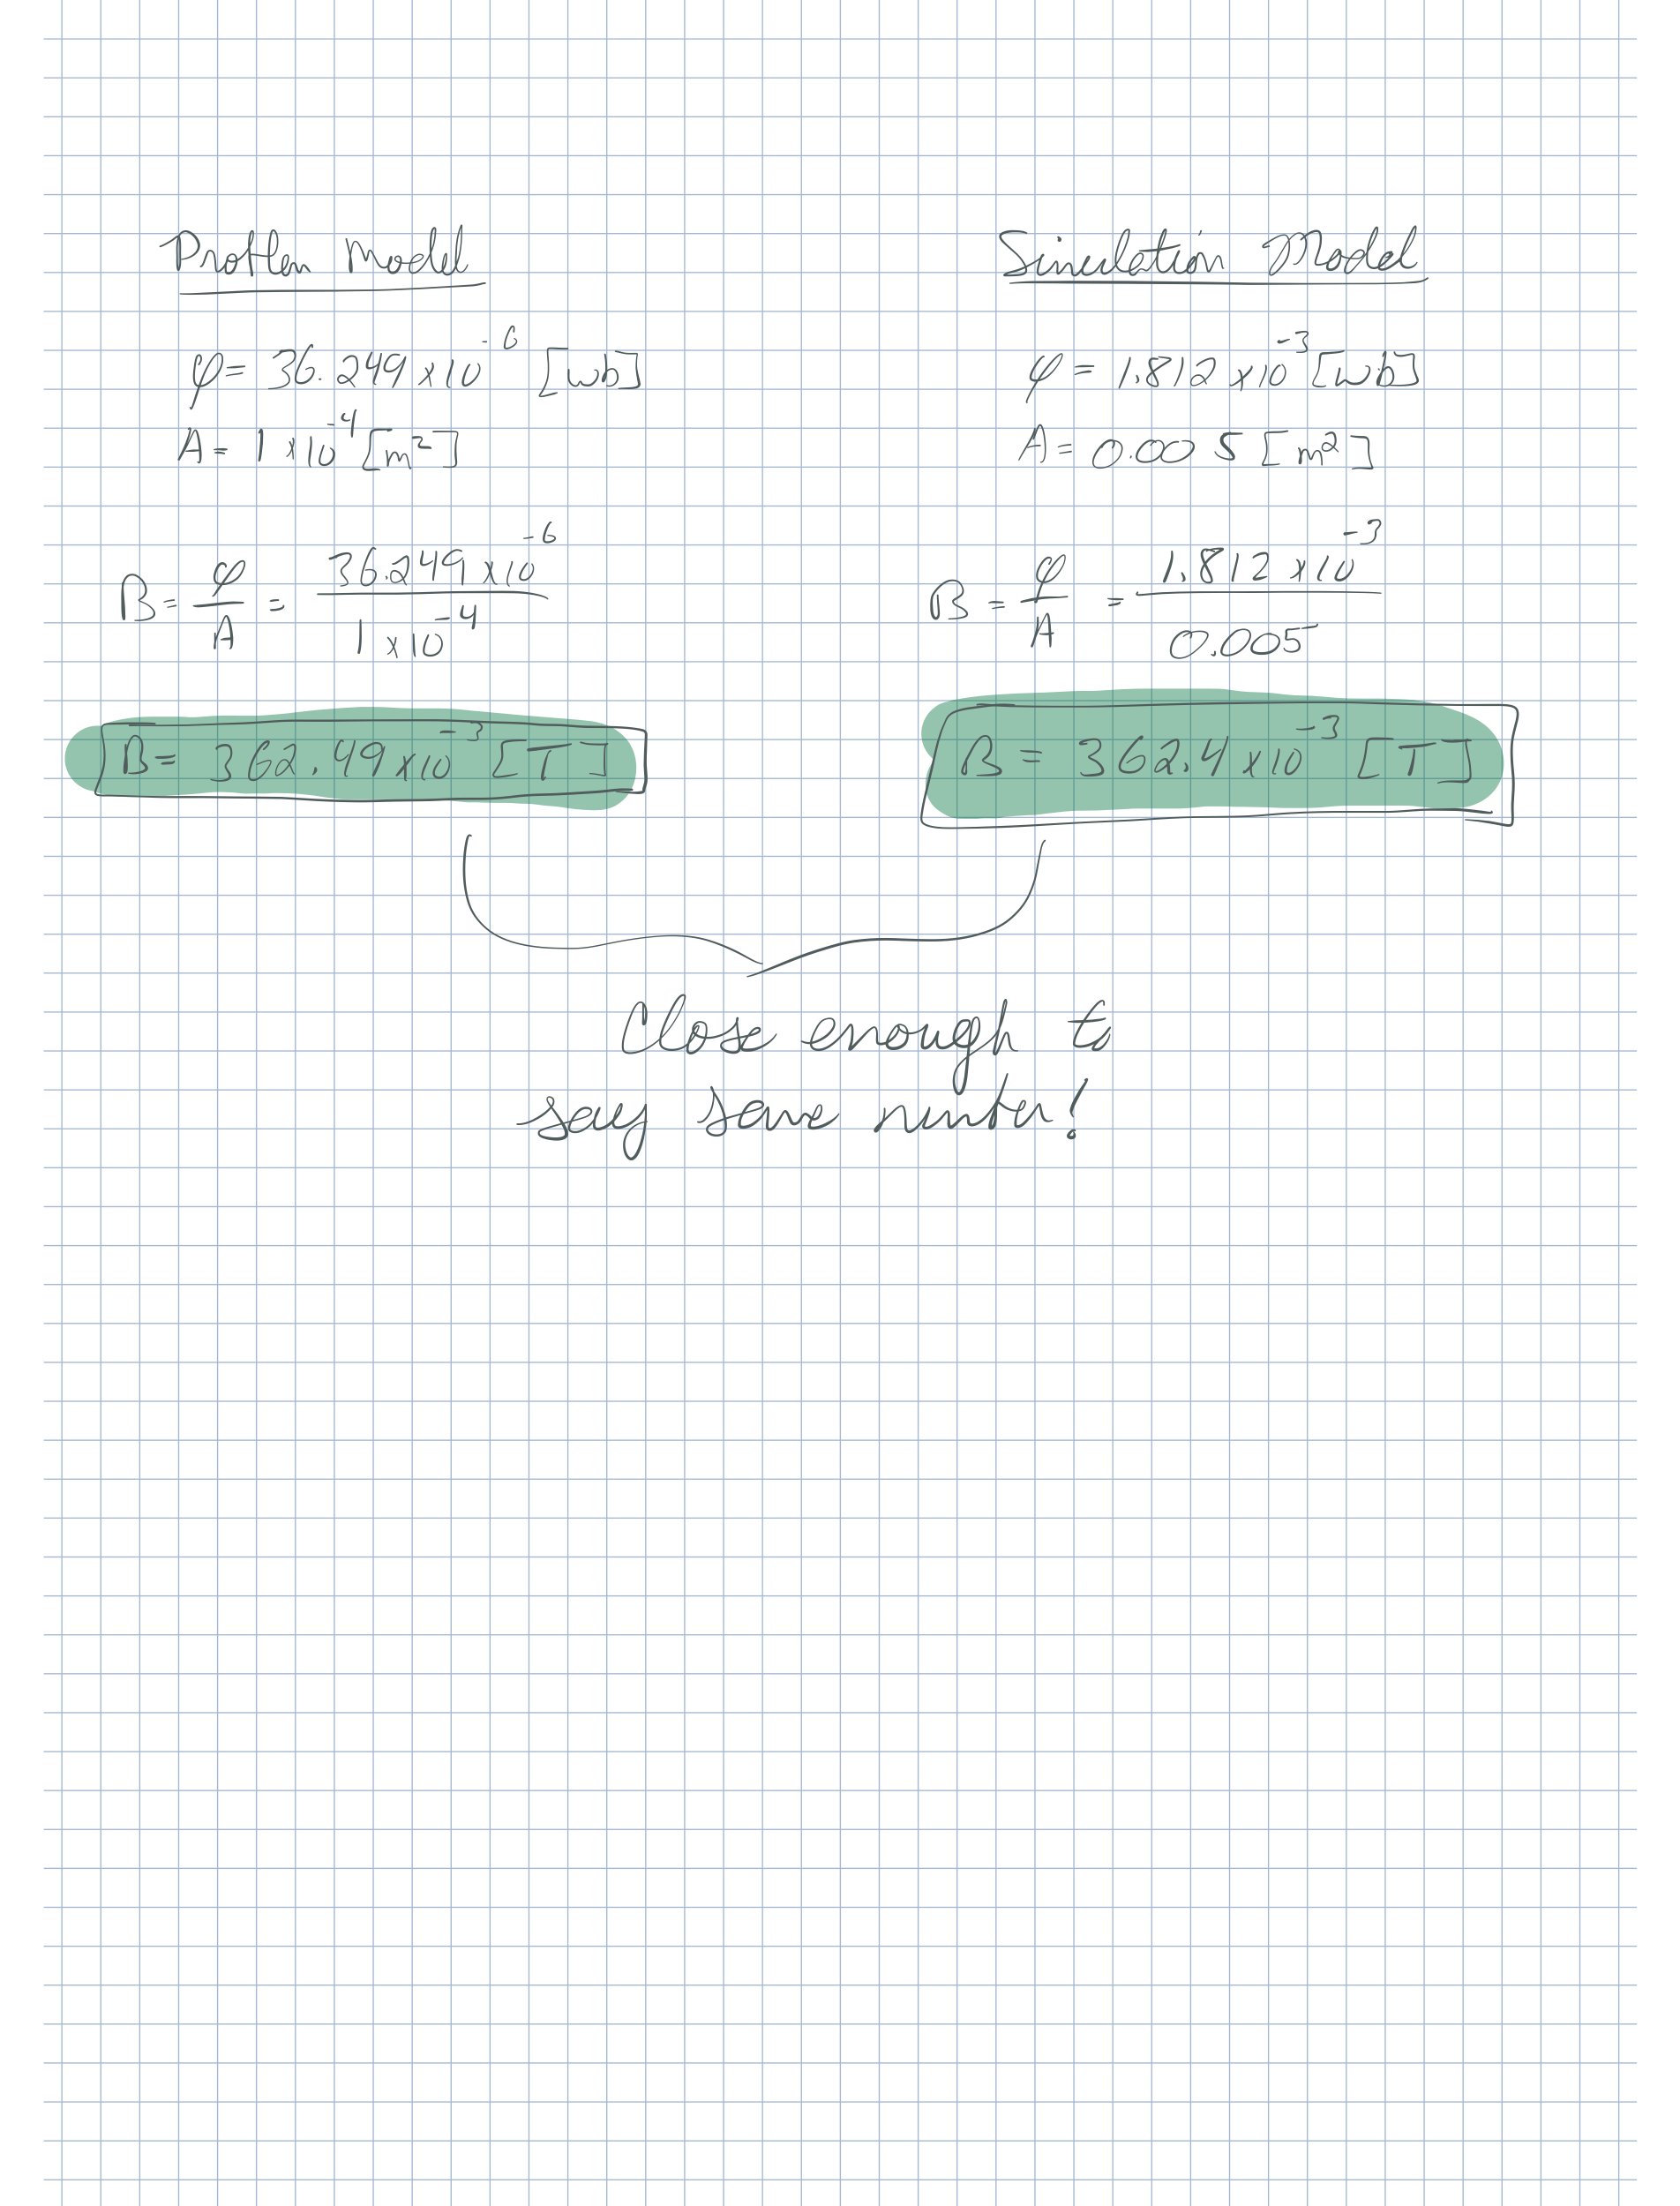 Problem Model
φ = 36.249 x10^-6 [wb]
A = 1 x10^-4 [m²]
B = φ/A = 36.249 x10^-6 / 1 x10^-4
B = 362.49 x10^-3 [T]
Simulation Model
φ = 1.812 x10^-3 [wb]
A = 0.005 [m²]
B = φ/A = 1.812 x10^-3 / 0.005
B = 362.4 x10^-3 [T]
Close enough to
say same number!